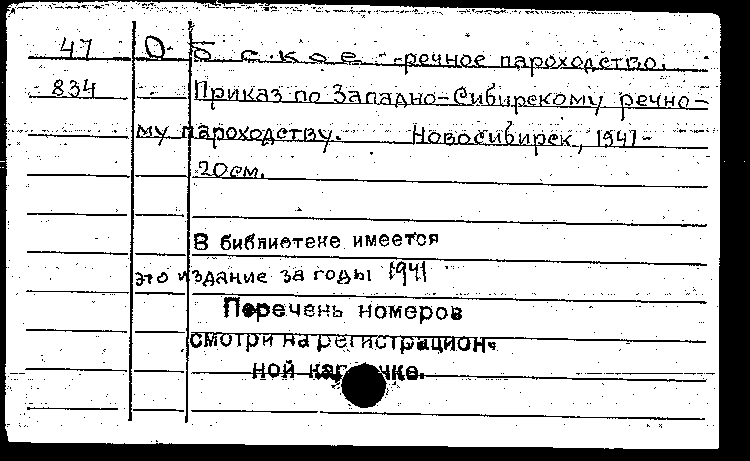 47 О б с к о е - речное пароходство.
834 Приказ по Западно-Сибирскому речно-
му пароходству. Новосибирск, 1941-
20см.
В библиотеке имеется
это издание за годы 1941
Перечень номеров
смотри на регистрацион-
ной карточке.